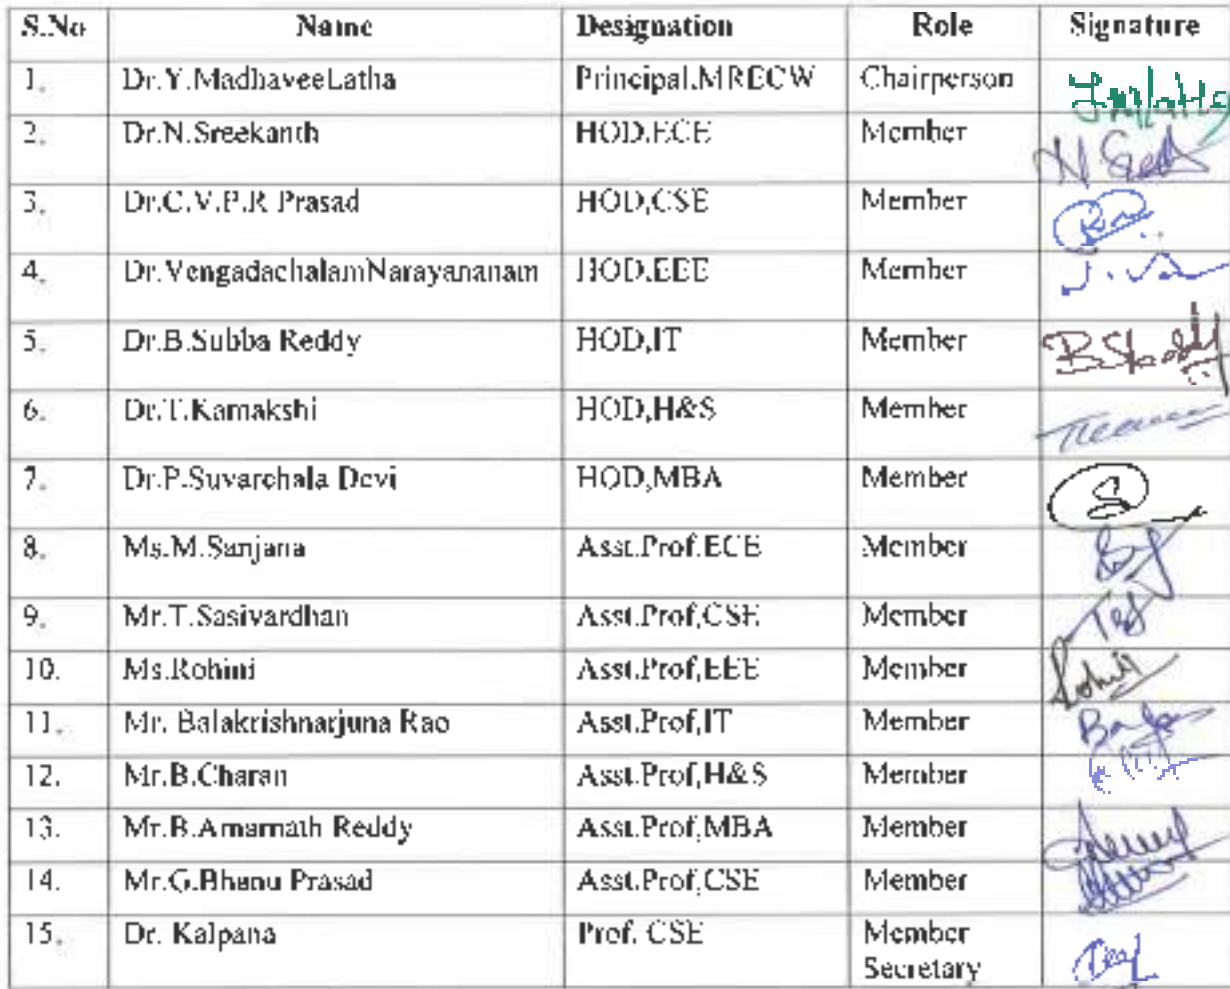 S.No Name Designation Role Signature
1. Dr.Y.MadhaveeLatha Principal.MRECW Chairperson
2. Dr.N.Sreekanth HOD.ECE Member
3. Dr.C.V.P.R Prasad HOD,CSE Member
4. Dr.VengadachalamNarayananam HOD.EEE Member
5. Dr.B.Subba Reddy HOD,IT Member
6. Dr.T.Kamakshi HOD,H&S Member
7. Dr.P.Suvarchala Devi HOD,MBA Member
8. Ms.M.Sanjana Asst.Prof.ECE Member
9. Mr.T.Sasivardhan Asst.Prof,CSE Member
10. Ms.Rohini Asst.Prof,EEE Member
11. Mr. Balakrishnarjuna Rao Asst.Prof,IT Member
12. Mr.B.Charan Asst.Prof,H&S Member
13. Mr.B.Amarnath Reddy Asst.Prof,MBA Member
14. Mr.G.Bhanu Prasad Asst.Prof,CSE Member
15. Dr. Kalpana Prof. CSE Member
Secretary